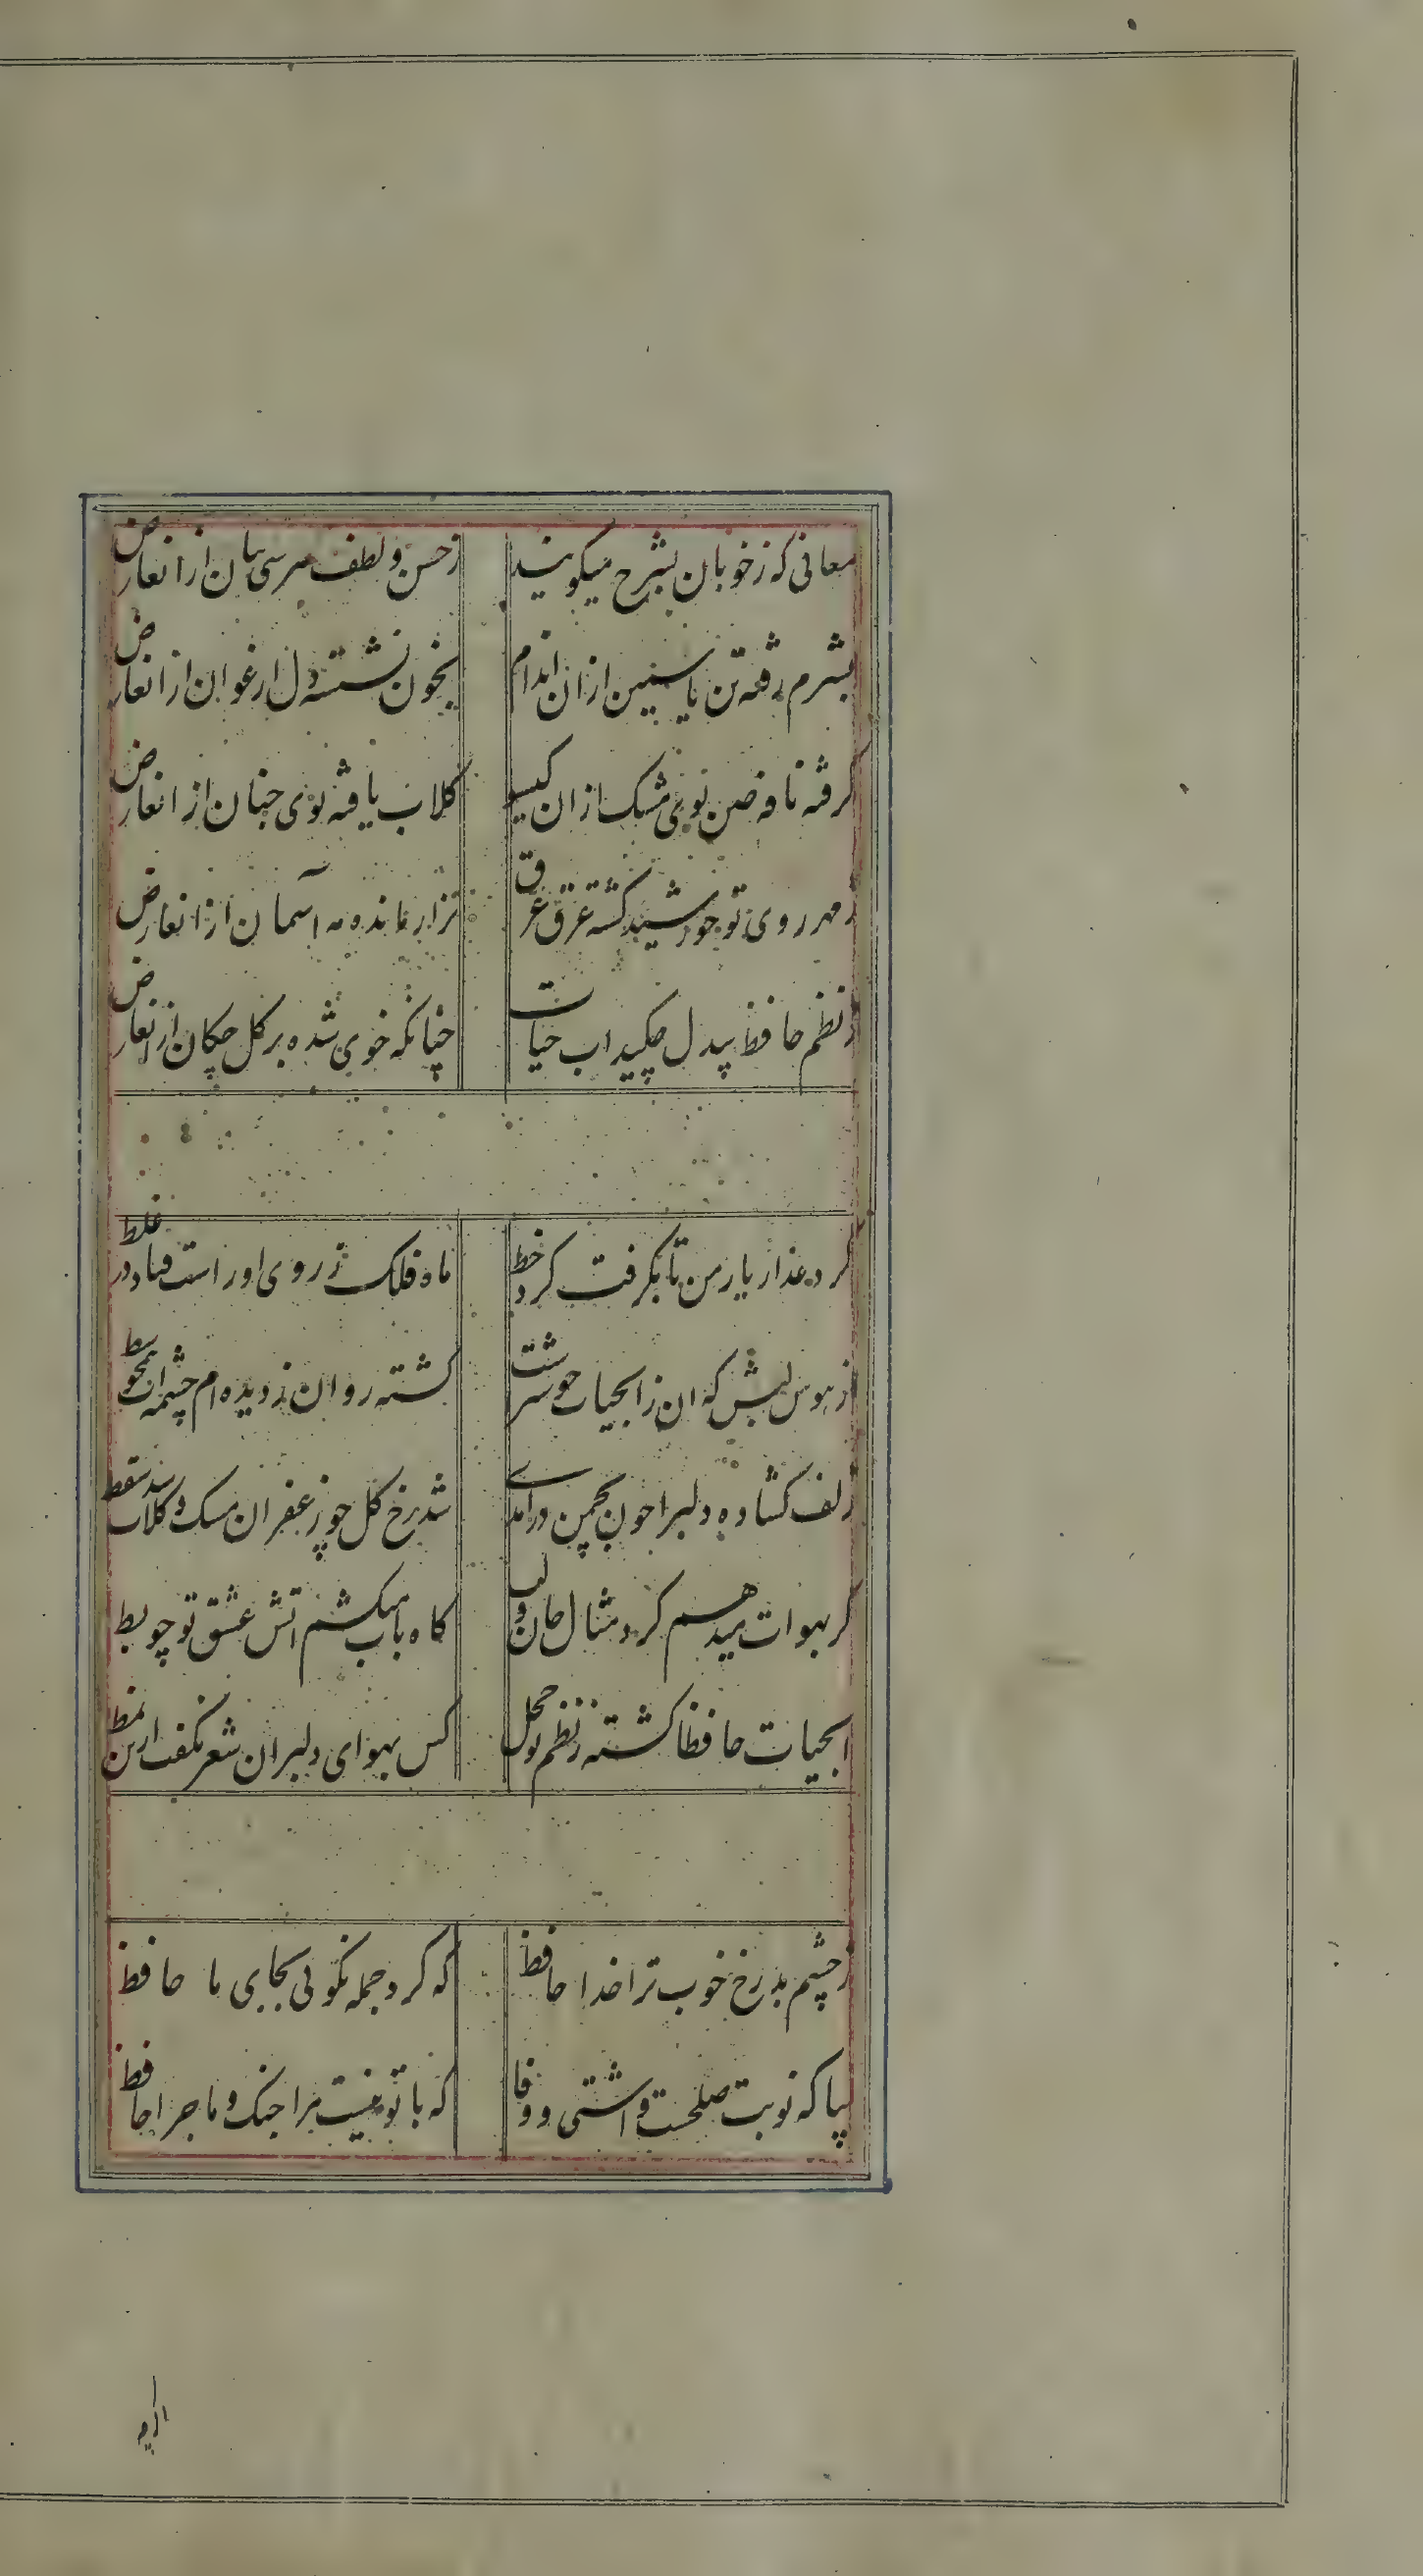 معانی که زخوبان بشرح میکویند زحسن ولطف مرسی بیان ازانعارض
بشرم رفته تن یاسمین ازان اندام بخون نشسته دل ارغوان ازانعارض
کرفته نافه بوی مشک ازان کیسو کلاب یافته بوی جنان ازانعارض
زمهر روی تو خورشید کشته غرق عرق نزار مانده مه آسمان ازانعارض
زنظم حافظ بیدل چکید اب حیات چنانکه خوی شده برکل چکان ازانعارض
کرد عذار یار من تا بکرفت کرد خط ماه فلک ز روی او راست فتاد در غلط
از هوس لبش که ان زابحیات خوشترست کشته روان ز دیده ام چشمه ان همچو شط
زلف کشاده دلبرا چون بچمن درآمدی شد رخ کل چو زعفران مشک و کلاب شد سقط
کر بهوات میدهم کرد مثال جان و لب کاه باب میکشم اتش عشق تو چو بط
ابحیات حافظا کشته ز نظم تو خجل کس بهوای دلبران شعر نکفت ازین نمط
ز چشم بد رخ خوب ترا خدا حافظ که کرد جمله نکوئی بجای ما حافظ
بیا که نوبت صلحست و اشتی و وفا که با تو نیست مرا جنک و ماجرا حافظ
اکرچه